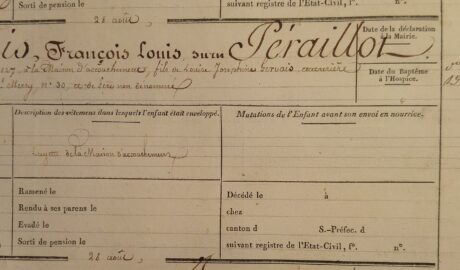 Sorti de pension le
suivant registre de l'Etat-Civil, f°. n°.
28 août
François Louis, surn Péraillot.
Date de la déclaration
à la Mairie.
à la Maison d'accouchement, fils de Louise Josephine Gervais, couturière
Date du Baptême
à l'Hospice.
Merry n° 30, et de père non dénommé
Description des vêtemens dans lesquels l'enfant était enveloppé.
Mutations de l'Enfant avant son envoi en nourrice.
Layette de la Maison d'accouchement
Ramené le
Décédé le à
Rendu à ses parens le
chez
Evadé le
canton d S.-Préfec. d
Sorti de pension le
suivant registre de l'Etat-Civil, f°. n°.
28 août